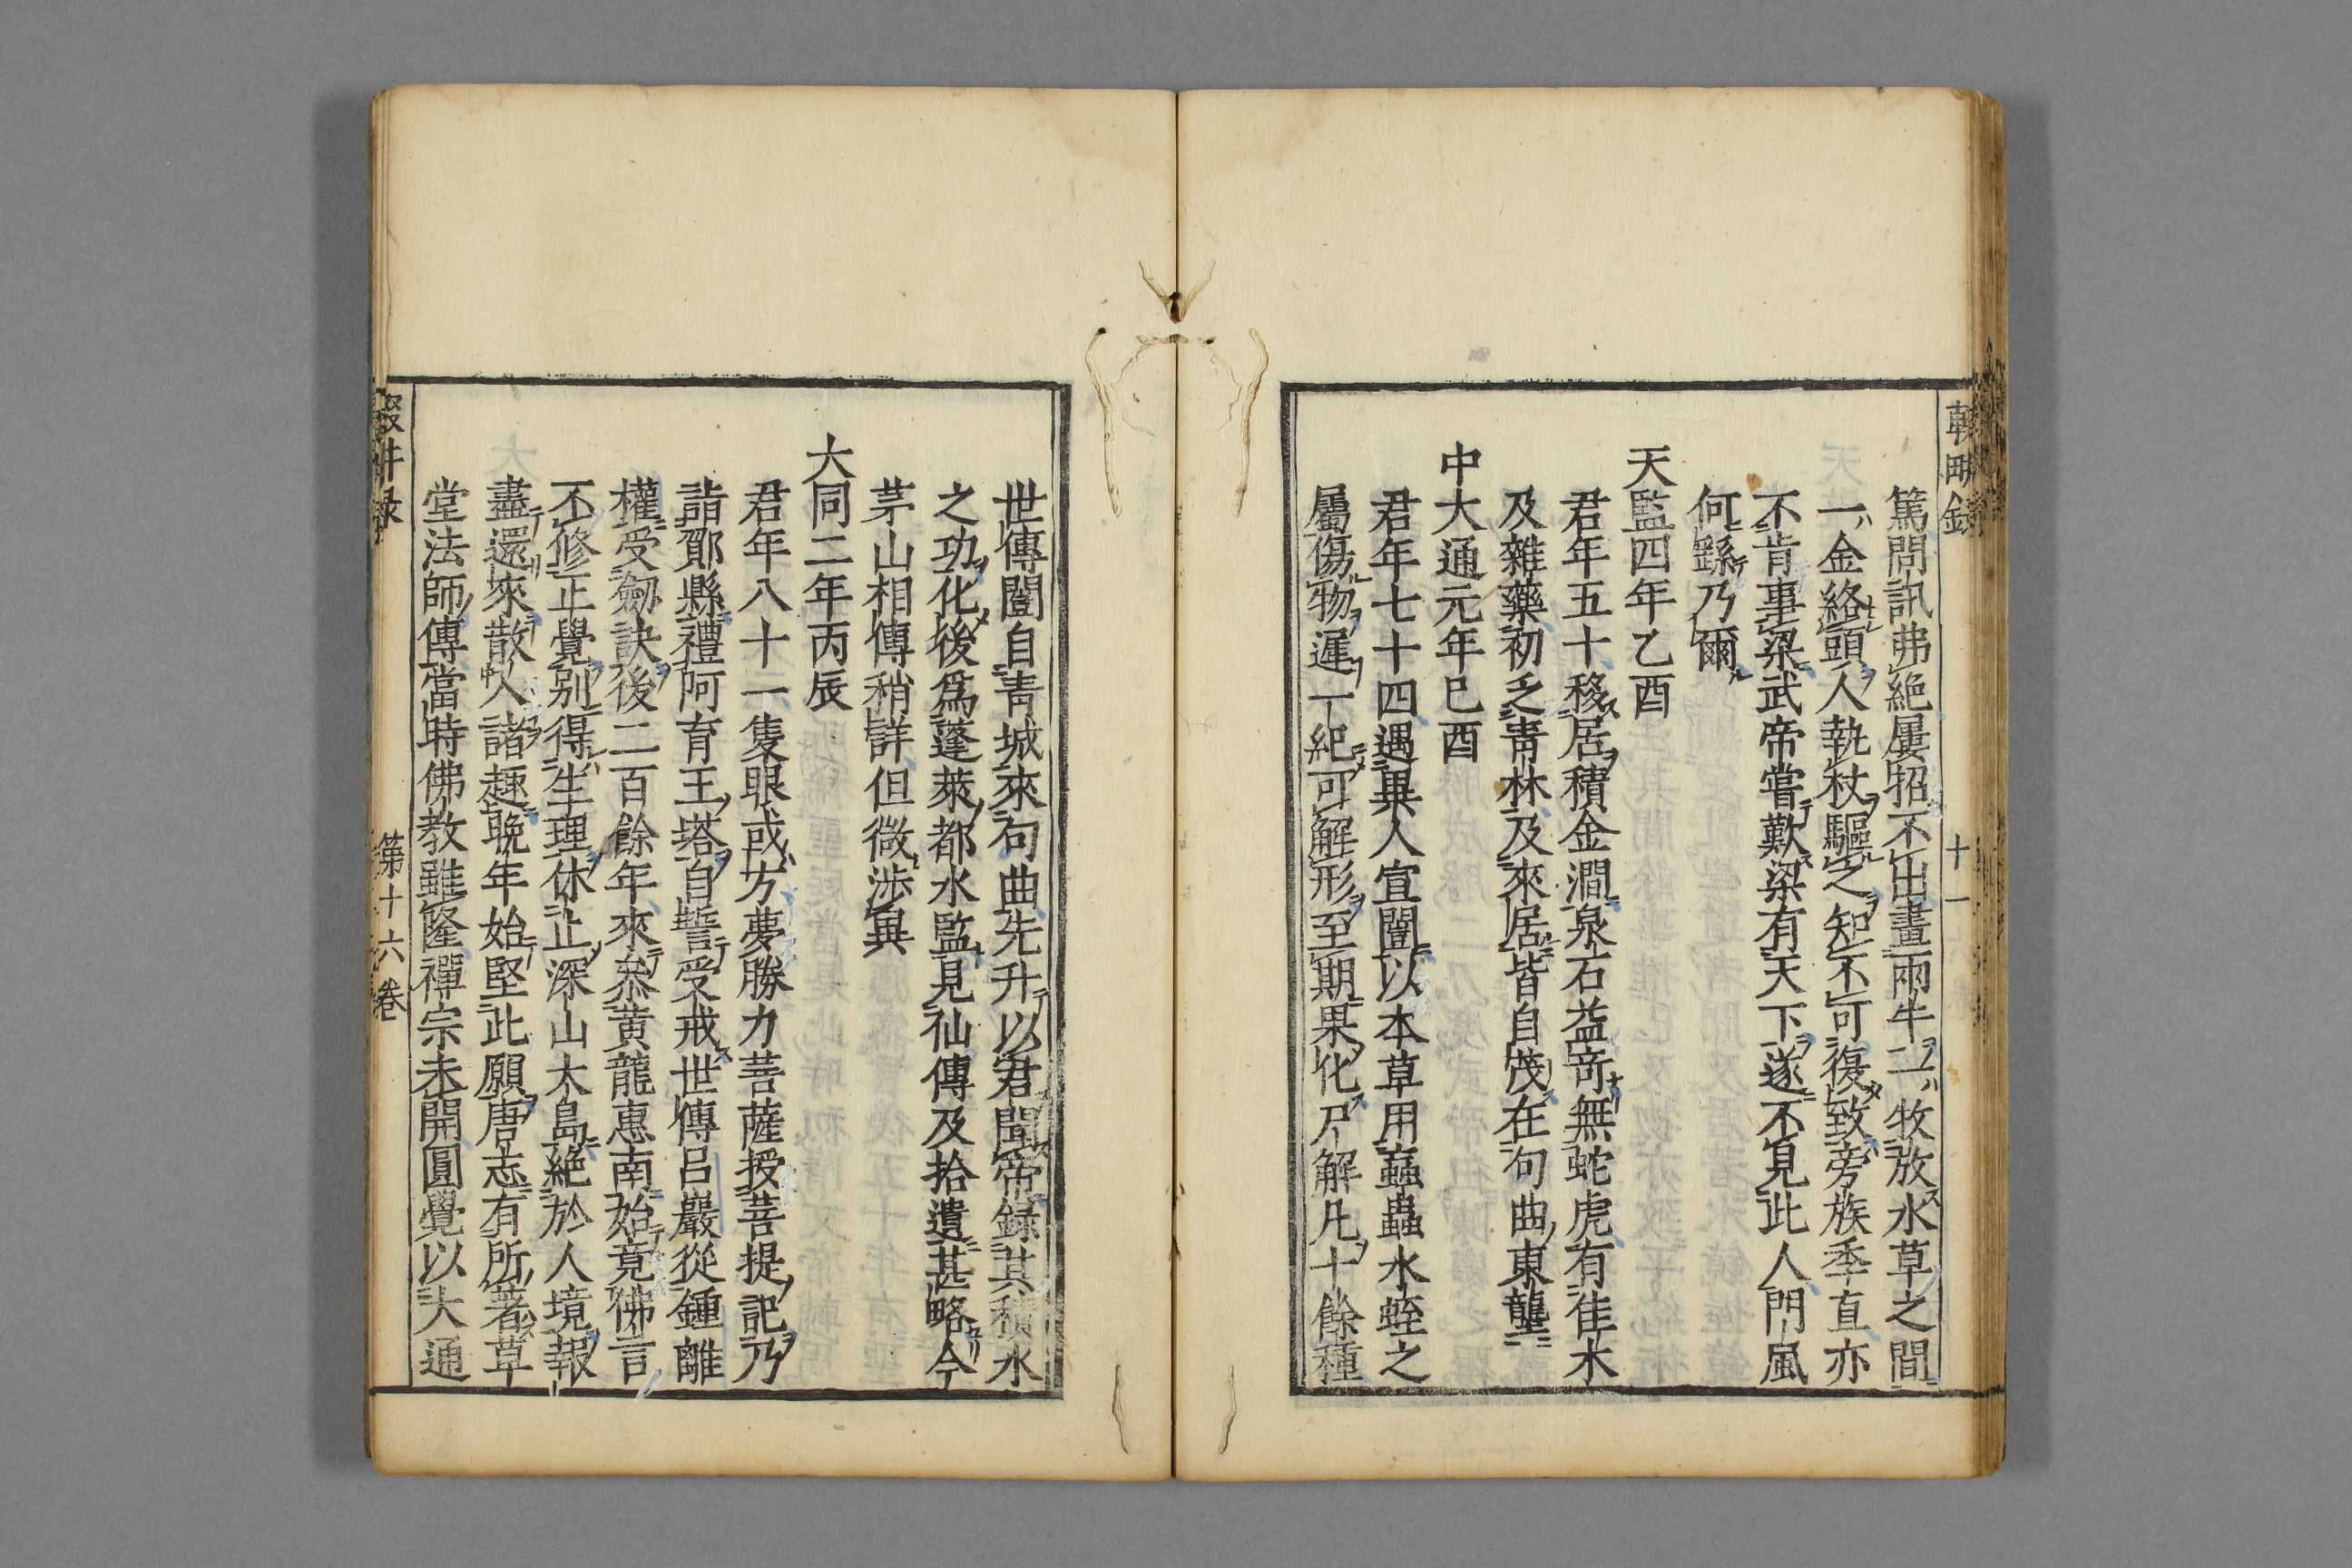 輟畊錄
十一
篤問訊弗絶屢招不出畫兩牛二牧放水草之間
一金絡頭人執杖驅之知不可復致旁族季直亦
不肯事梁武帝嘗歎梁有天下遂不見此人門風
何繇乃爾
天監四年乙酉
君年五十移居積金澗泉石益奇無蛇虎有佳木
及雜藥初乏靑林及來居皆自茂在句曲東壟
中大通元年巳酉
君年七十四遇異人宣闓以本草用蝱蟲水蛭之
屬傷物遲一紀可解形至期果化尸解凡十餘種
世傳闓自靑城來句曲先升以君聞帝錄其積水
之功化後爲蓬萊都水監見仙傳及拾遺甚略今
茅山相傳稍詳但微渉異
大同二年丙辰
君年八十一隻眼或方夢勝力菩薩授菩提記乃
詣鄮縣禮阿育王塔自誓受戒世傳呂巖從鍾離
權受劔訣後二百餘年來叅黄龍惠南始竟佛言
不修正覺別得生理休止深山大島絶於人境報
盡還來散入諸趣晩年始堅此願唐志有所著草
堂法師傳當時佛教雖隆禪宗未開圓覺以大通
輟畊録
第十六卷